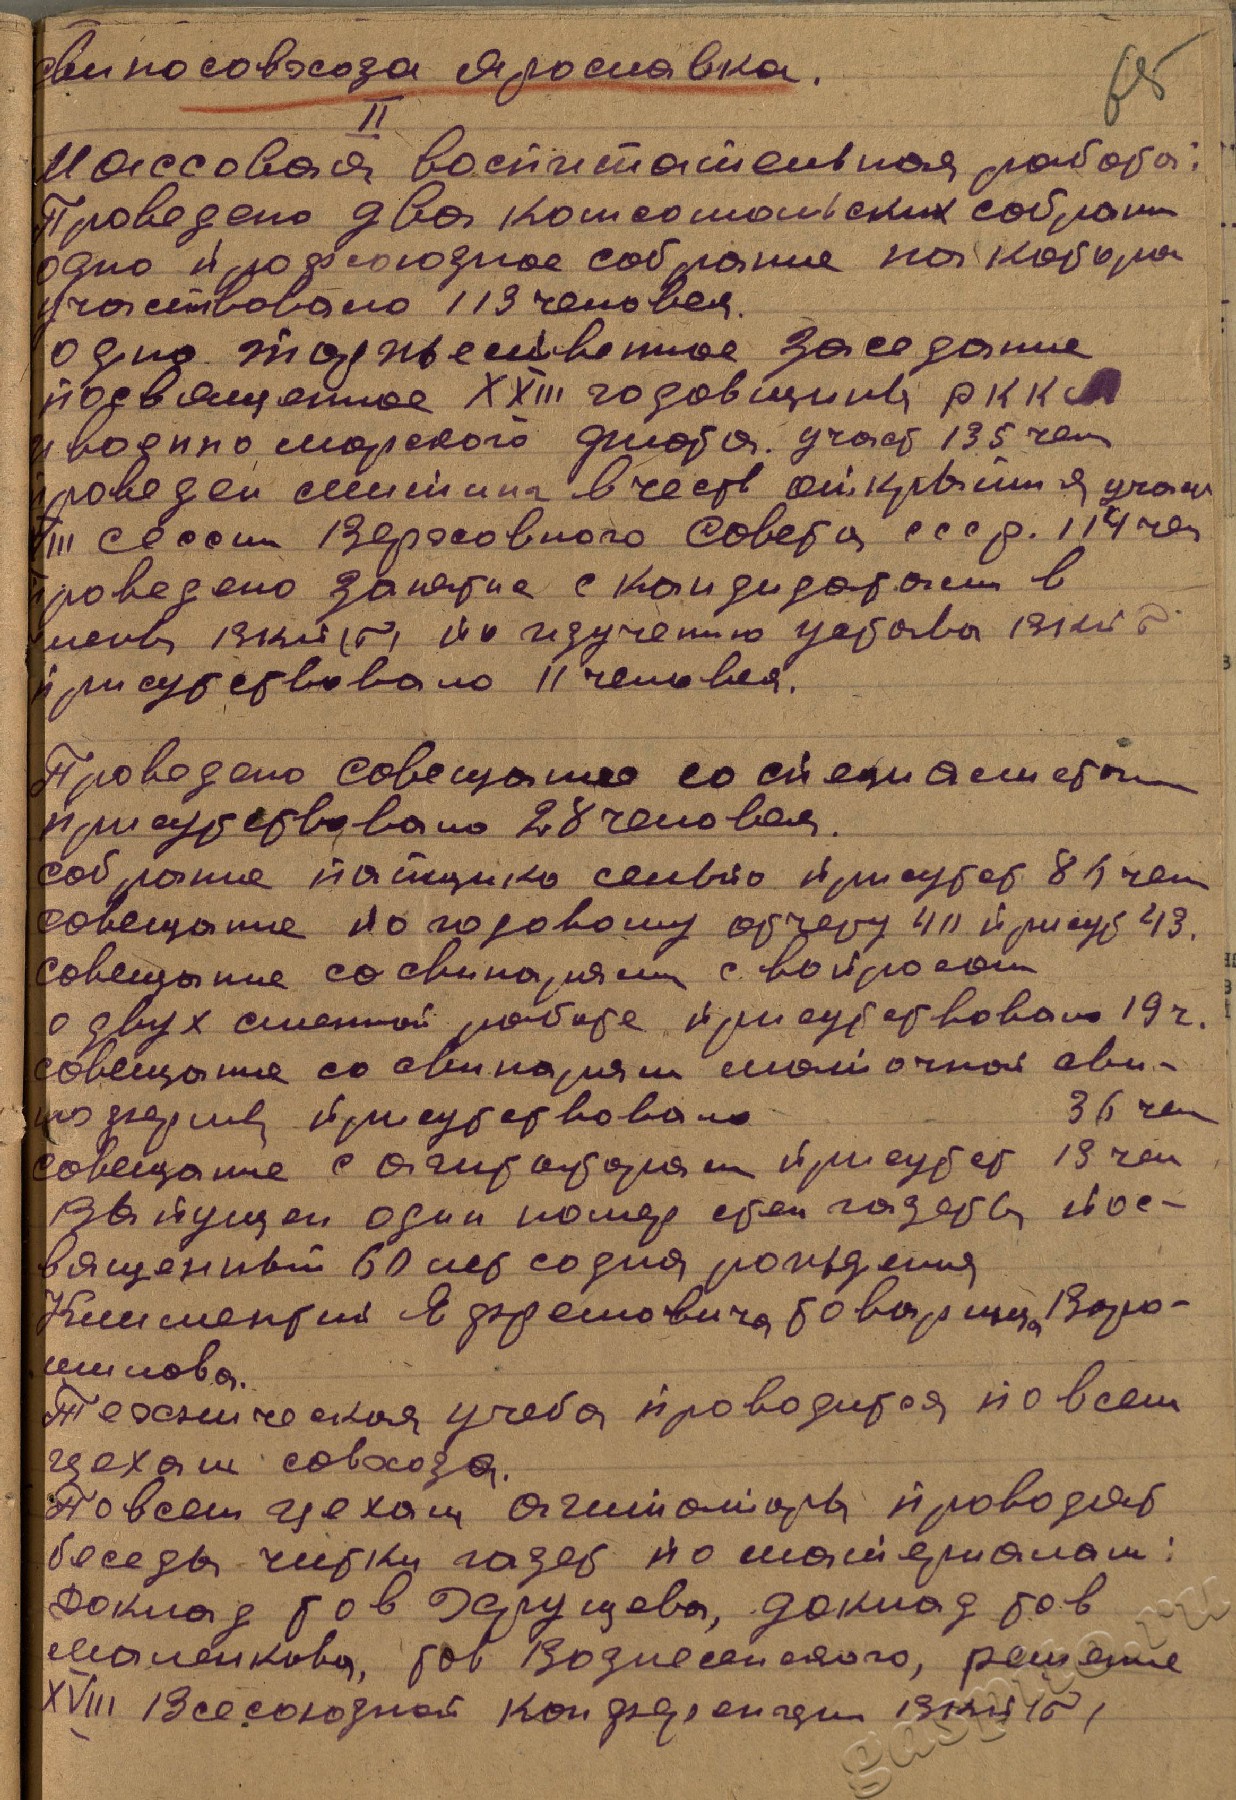 свиносовхоза Ярославка.
65
II
Массовая воспитательная работа:
Проведено два комсомольских собрани
одно профсоюзное собрание на котори
участвовало 113 человек.
одно торжественное заседание
посвященное XXIII годовщины РККА
и военно морского флота. участ 135 чел
проведен митинг в честь открытия участ
VIII сессии Верховного Совета СССР. 114 чел
проведено занятие с кандидатами в
члены ВКП(б), по изучению устава ВКПб
присутствовало 11 человек.
Проведено совещание со специалистами
присутствовало 28 человек.
собрание пайщико сельпо присутст 86 чел
совещание по годовому отчету 40 присут 43.
совещание со свинарям с вопросом
о двух сменной работе присутствовало 19 ч.
совещание со свинарям маточной сви-
нофермы присутствовало 36 чел
совещание с агитаторам присутст 13 чел
Выпущен один номер стен газеты пос-
вященный 60 лет со дня рождения
Климентий Ефремовича товарища Воро-
шилова.
Техническая учеба проводится по всем
цехам совхоза.
По всем цехам агитаторы проводят
беседы читки газет по материалам:
Доклад тов Хрущева, доклад тов
Маленкова, тов Вознесенского, решение
XVIII Всесоюзной конференции ВКП(б),
gaspito.ru